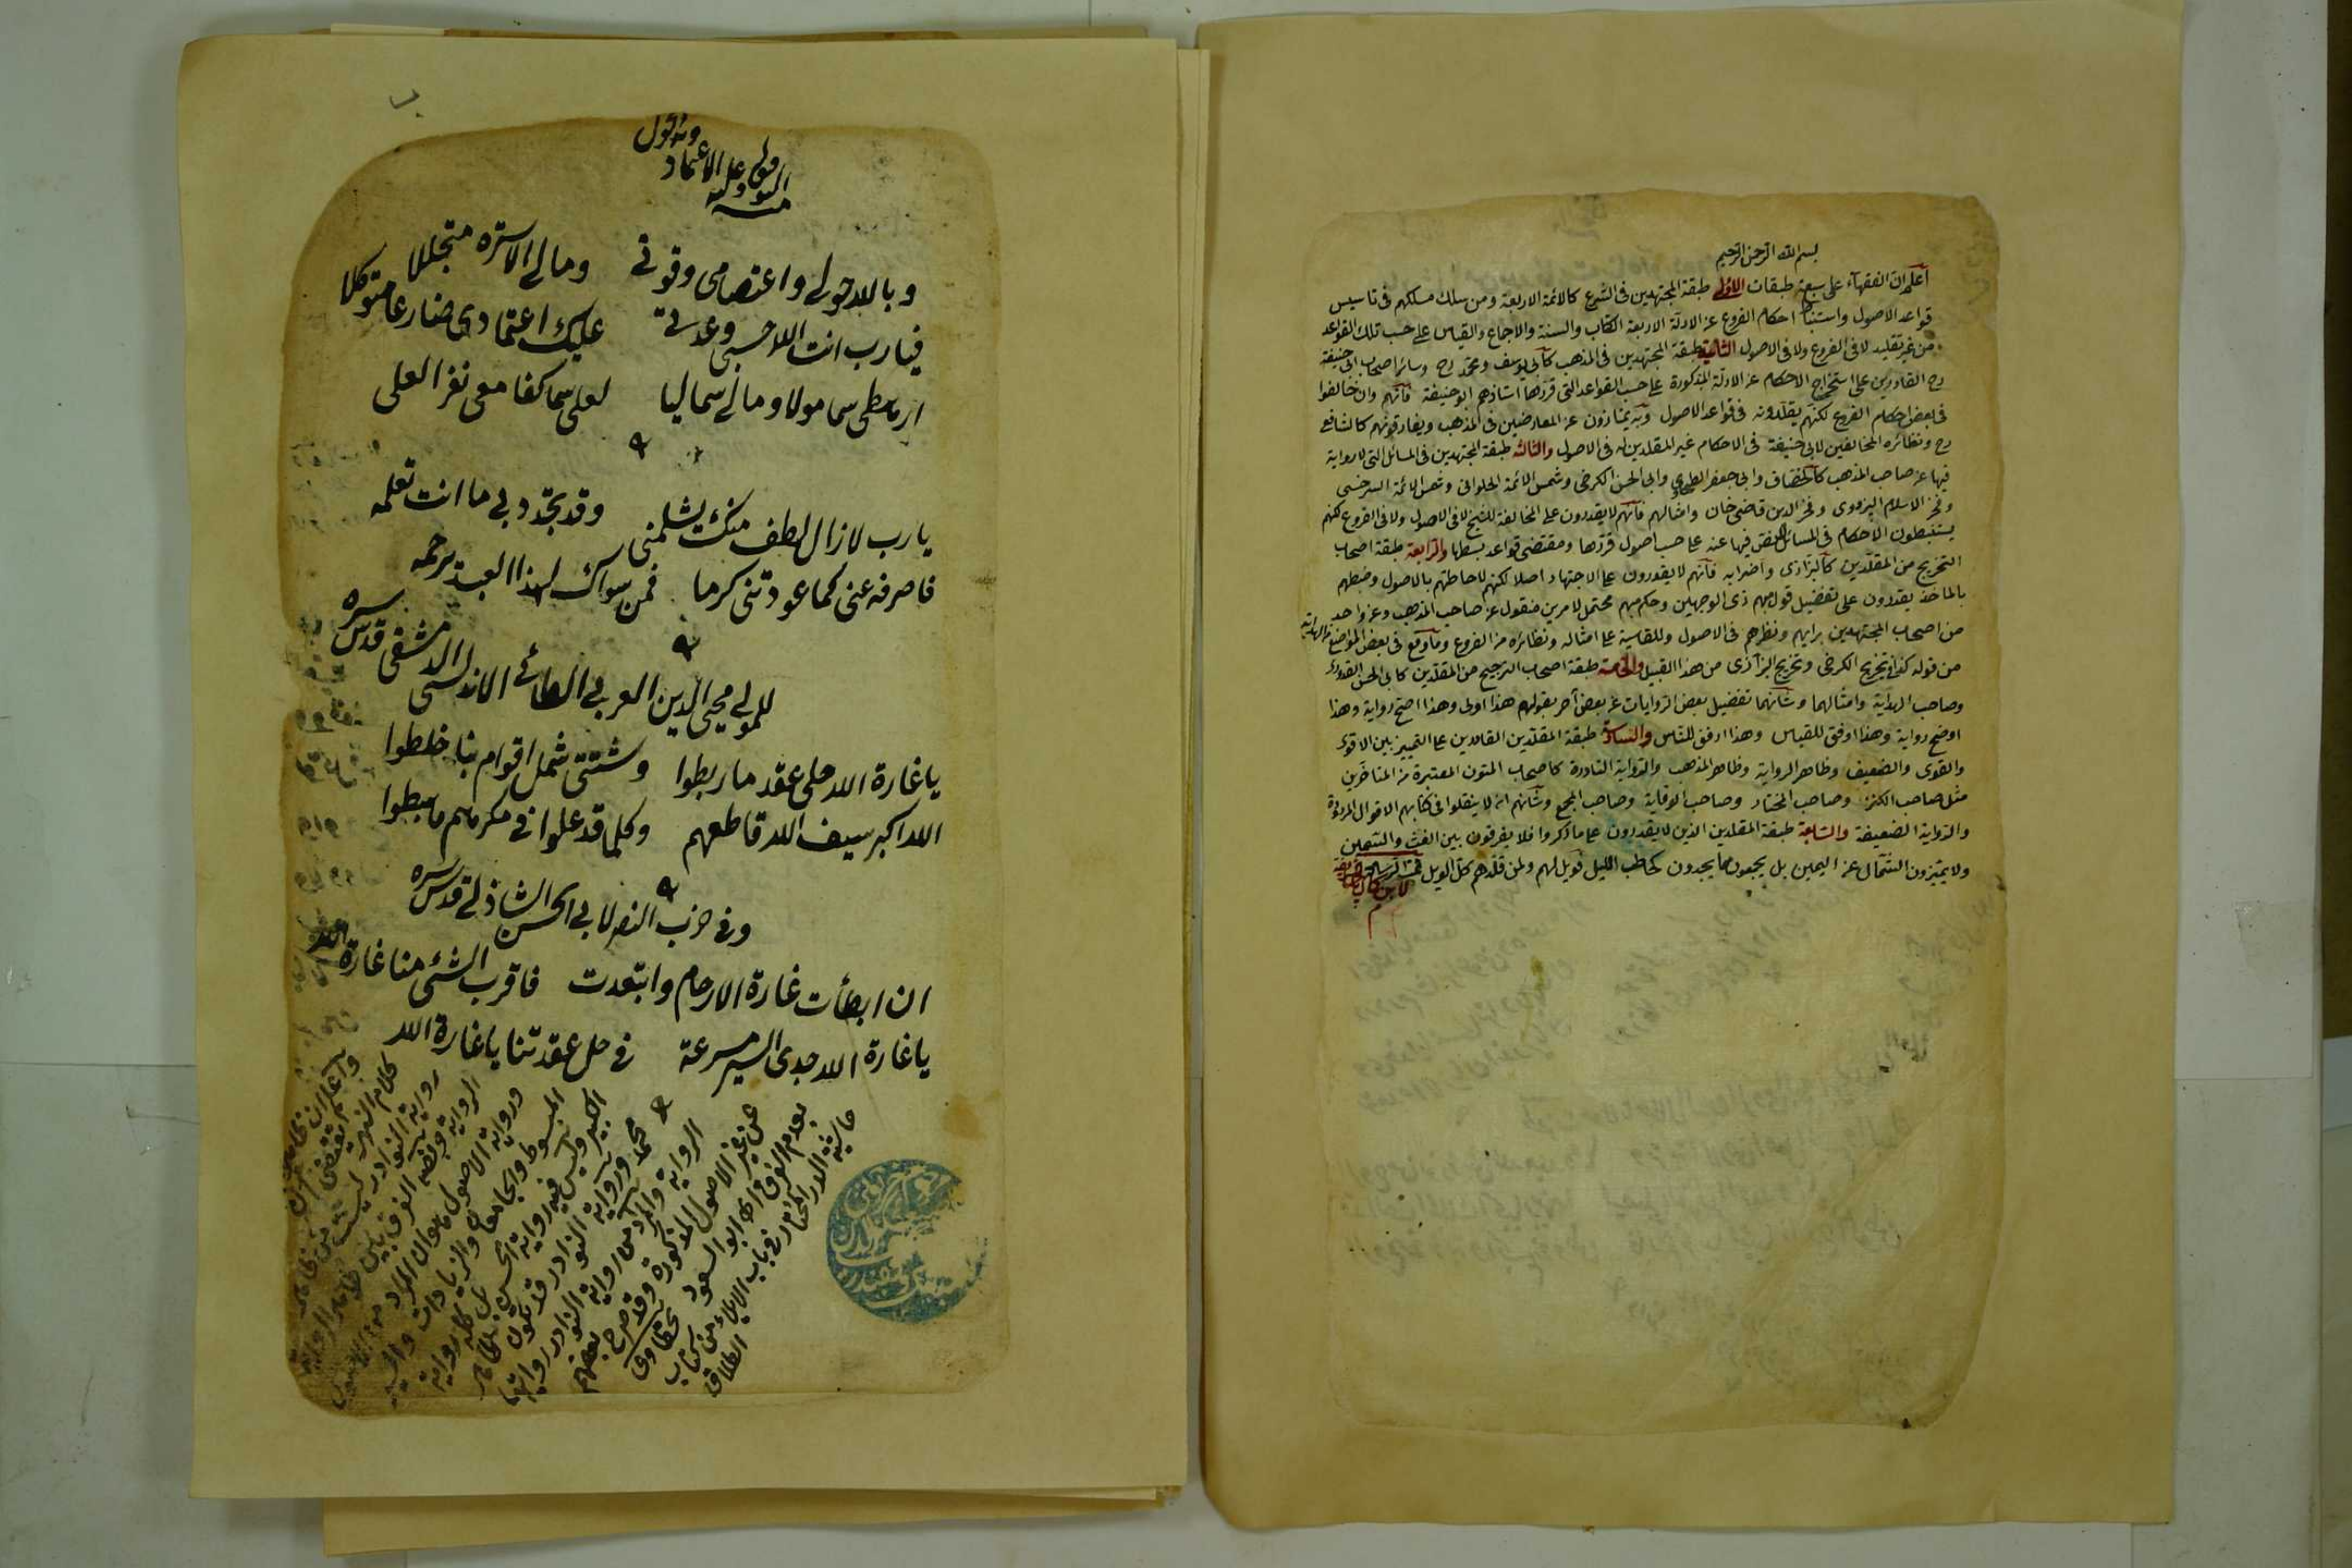 بسم الله الرحمن الرحيم
اعلم ان الفقهآء على سبعة طبقات الاولى طبقة المجتهدين فى الشرع كالائمة الاربعة ومن سلك مسلكهم فى تاسيس
قواعد الاصول واستنباط احكام الفروع عن الادلة الاربعة الكتاب والسنة والاجماع والقياس على حسب تلك القواعد
من غير تقليد لا فى الفروع ولا فى الاصول الثانية طبقة المجتهدين فى المذهب كابى يوسف ومحمد رح وسائر اصحاب ابى حنيفة
رح القادرين على استخراج الاحكام عن الادلة المذكورة على حسب القواعد التى قررها استاذهم ابو حنيفة فانهم وان خالفوا
فى بعض احكام الفروع لكنهم يقلدونه فى قواعد الاصول وبه يمتازون عن المعارضين فى المذهب ويفارقونهم كالشافعى
رح ونظائره المخالفين لابى حنيفة فى الاحكام غير المقلدين له فى الاصول والثالثه طبقة المجتهدين فى المسائل التى لا رواية
فيها عن صاحب المذهب كالخصاف وابى جعفر الطحاوى وابى الحسن الكرخى وشمس الائمة الحلوانى وشمس الائمة السرخسى
وفخر الاسلام البزدوى وفخر الدين قاضى خان وامثالهم فانهم لا يقدرون على المخالفة للشيخ لا فى الاصول ولا فى الفروع لكنهم
يستنبطون الاحكام فى المسائل لا نص فيها عنه على حسب اصول قررها ومقتضى قواعد بسطها والرابعة طبقة اصحاب
التخريج من المقلدين كالرازى واضرابه فانهم لا يقدرون على الاجتهاد اصلا لكنهم لاحاطتهم بالاصول وضبطهم
بالماخذ يقدرون على تفضيل قول مبهم ذى الوجهين وحكم مبهم محتمل لامرين منقول عن صاحب المذهب وعن واحد
من اصحاب المجتهدين برايهم ونظرهم فى الاصول وللقاسية على امثاله ونظائره من الفروع وما وقع فى بعض المواضع من الهداية
من قوله كذا فى تخريج الكرخى وتخريج الرازى من هذا القبيل والخامسة طبقة اصحاب الترجيح من المقلدين كابى الحسن القدورى
وصاحب الهداية وامثالهما وشأنهما تفضيل بعض الروايات عن بعض آخر بقولهم هذا اولى وهذا اصح رواية وهذا
اوضح رواية وهذا اوفق للقياس وهذا ارفق للناس والسادسة طبقة المقلدين القادرين على التمييز بين الاقوى
والقوى والضعيف وظاهر الرواية وظاهر المذهب والرواية النادرة كاصحاب المتون المعتبرة من المتاخرين
مثل صاحب الكنز وصاحب المختار وصاحب الوقاية وصاحب المجمع وشأنهم ان لا ينقلوا فى كتابهم الاقوال المردودة
والرواية الضعيفة والسابعة طبقة المقلدين الذين لا يقدرون على ما ذكروا فلا يفرقون بين الغث والسمين
ولا يميزون الشمال عن اليمين بل يجمعون ما يجدون كحاطب الليل فويل لهم ولمن قلدهم كل الويل تمت الرسالة
لابن كمال پاشا
وبه الحول
وعليه الاعتماد
وبالله حولى واعتصامى وقوتى ومالى الا ستره متجللا
فيارب انت الله حسبى وعدتى عليك اعتمادى ضارعا متوكلا
يارب لازال لطف منك يشملنى وقد تجدد بى ما انت تعلمه
فاصرفه عنى كما عودتنى كرما فمن سواك لهذا العبد يرحمه
للمولى محيى الدين العربى الطائى الاندلسى الدمشقى قدس سره
يا غارة الله حلى عقد ما ربطوا وشتتى شمل اقوام بنا خلطوا
الله اكبر سيف الله قاطعهم وكلما قد علوا فى مكرهم هبطوا
وفى حزب النصر لابى الحسن الشاذلى قدس سره
ان ابطأت غارة الارحام وابتعدت فاقرب الشئ منا غارة الله
يا غارة الله جدى السير مسرعة فى حل عقدتنا يا غارة الله
كلام
رواية النوادر ليست
الرواية وقضيه الفرق بين ظاهر الرواية
ورواية الاصول هو ان المراد من
المبسوط والجامعان والزيادات والسير
الكبير وليس فيه رواية الحسن بل كله رواية
محمد ورواية النوادر قد تكون ظاهر
الرواية والمراد من رواية النوادر روايتها
عن غير الاصول المذكورة وقد صرح بعضهم
بعدم الفرق اه ابو السعود طحطاوى
حاشية الدر المختار فى باب الايلاء من كتاب
الطلاق